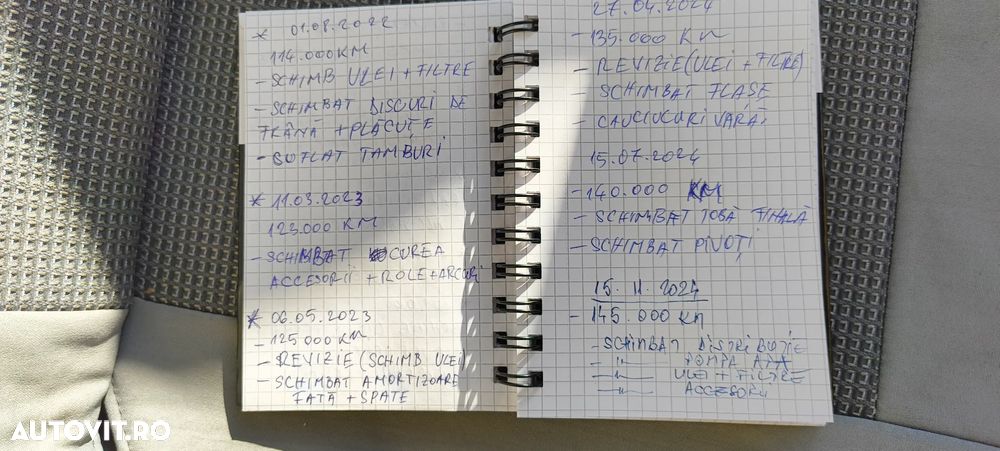 * 01.08.2022
114.000KM
- SCHIMB ULEI + FILTRE
- SCHIMBAT DISCURI DE
FRÂNĂ + PLĂCUȚE
- SUFLAT TAMBURI
* 11.03.2023
123.000 KM
- SCHIMBAT CUREA
ACCESORII + ROLE + ARCURI
* 06.05.2023
- 125000 KM
- REVIZIE (SCHIMB ULEI)
- SCHIMBAT AMORTIZOARE
FAȚĂ + SPATE
27.04.2024
- 135.000 KM
- REVIZIE (ULEI + FILTRE)
- SCHIMBAT FLAȘE
- CAUCIUCURI VARĂ
15.07.2024
- 140.000 KM
- SCHIMBAT TOBĂ FINALĂ
- SCHIMBAT PIVOȚI
15.11.2024
- 145.000 KM
- SCHIMBAT DISTRIBUȚIE
-"- POMPA APĂ
-"- ULEI + FILTRE
-"- ACCESORII
AUTOVIT.RO